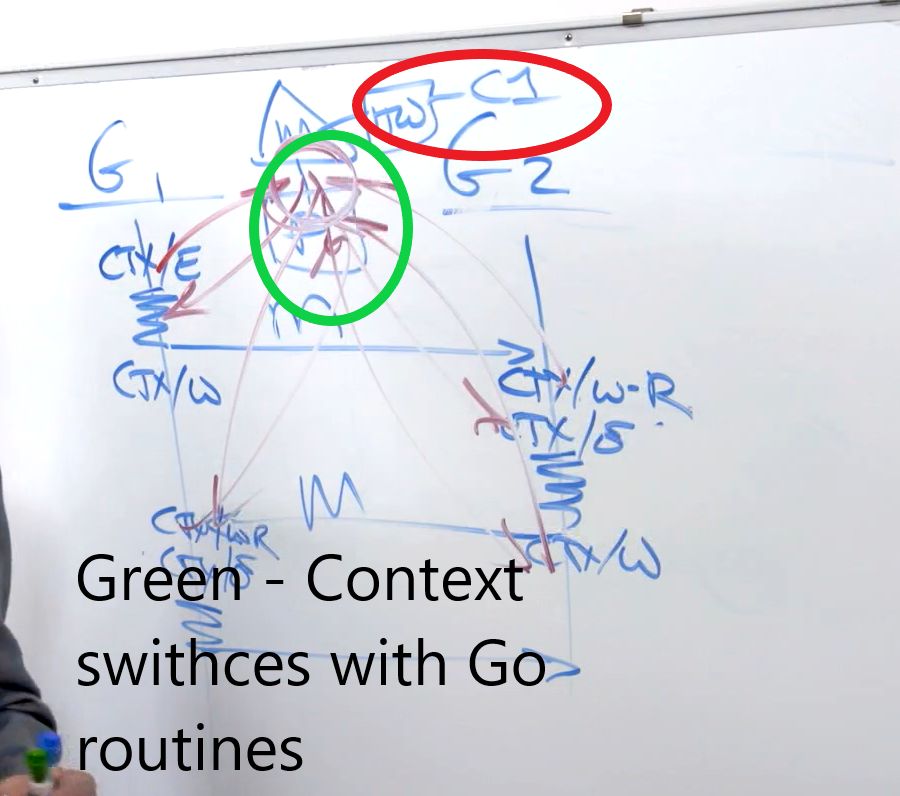 C1
M
HW
G1
G2
CTX/E
M
CTX/W
CTX/W-R
CTX/E
M
CTX/WR
CTX/W
Green - Context
swithces with Go
routines